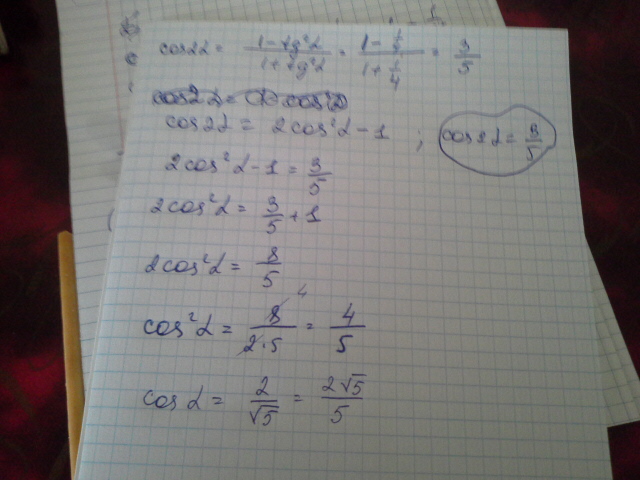 cos2α = (1 - tg²α)/(1 + tg²α) = (1 - 1/4)/(1 + 1/4) = 3/5
cos2α =
cos2α = 2cos²α - 1 ; cos2α = 3/5
2cos²α - 1 = 3/5
2cos²α = 3/5 + 1
2cos²α = 8/5
cos²α = 8/(2·5) 4 = 4/5
cos α = 2/√5 = 2√5/5